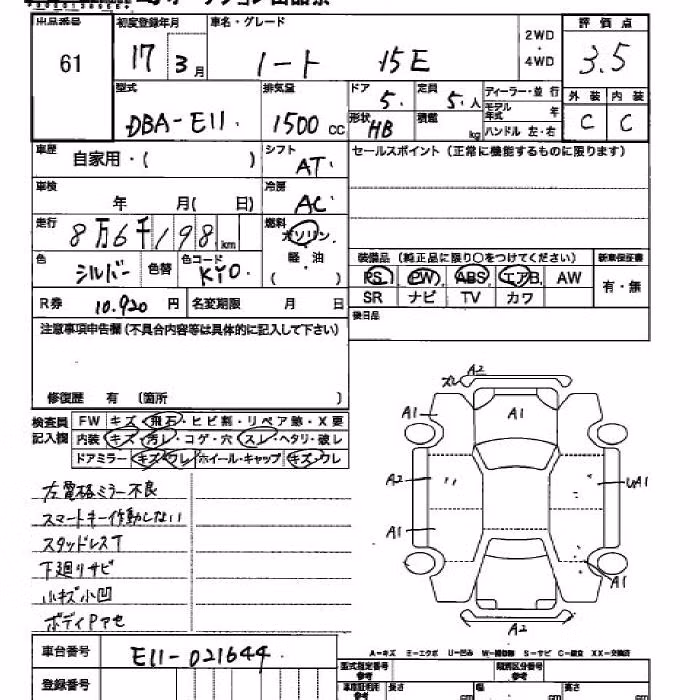 出品番号 初度登録年月 車名・グレード 2WD・4WD 評価点
61 17 3月 ノート 15E 3.5
型式 排気量 ドア 5. 定員 5.人 ディーラー・並行 外装 内装
DBA-E11. 1500cc 形状 HB 積載 kg モデル年式 年 C C
ハンドル 左・右
車歴 自家用・( ) シフト AT. セールスポイント(正常に機能するものに限ります)
車検 年 月( 日) 冷房 AC
走行 8万6千198km 燃料 ガソリン
軽・油
( )
色 シルバー 色替 色コード KY0 装備品(純正品に限り○をつけてください) 新車保証書
PS PW ABS エアB AW 有・無
R券 10.920円 名変期限 月 日 SR ナビ TV カワ
注意事項申告欄(不具合内容等は具体的に記入して下さい) 後日品
修復歴 有 (箇所 )
検査員記入欄
FW キズ・飛石・ヒビ割・リペア跡・X要
内装 キズ・汚レ・コゲ・穴・スレ・ヘタリ・破レ
ドアミラー キズ・ワレ ホイール・キャップ キズ・ワレ
左電格ミラー不良
スマートキー作動しない
スタッドレスT
下廻りサビ
小キズ小凹
ボディPアセ
ズレ A2
A1 A1
A2 UA1
A1
A1
A2
A-キズ E-エクボ U-凹み W-補修跡 S-サビ C-腐食 XX-交換済
車台番号 E11-021644
型式指定番号 参考 類別区分番号 参考
登録番号 長さ cm 幅 cm 高さ cm